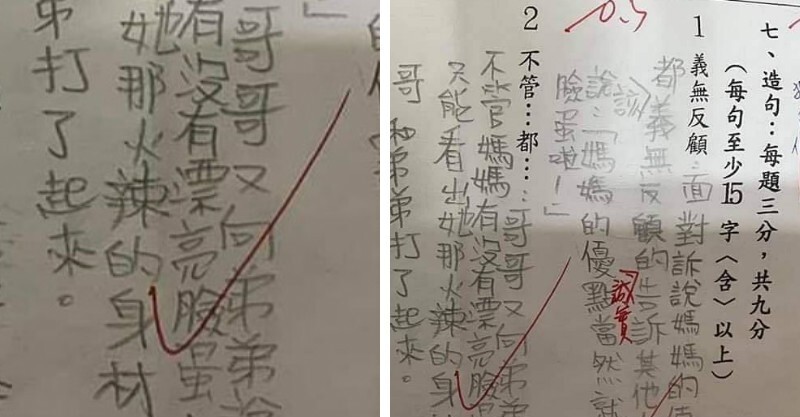 哥哥又向弟弟
有沒有漂亮臉蛋
她那火辣的身材
弟打了起來。
」
七、造句：每題三分，共九分
（每句至少15字〈含〉以上）
1 義無反顧：面對訴說媽媽的
都義無反顧的告訴其他
說：「媽媽的優點當然就
誠實
臉蛋啦！」
0.5
2 不管…都…：哥哥又向弟弟
不管媽媽有沒有漂亮臉
只能看出她那火辣的身
哥和弟弟打了起來。